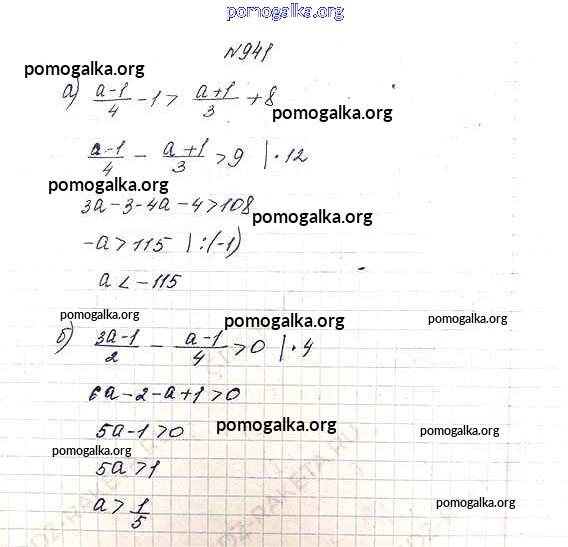 pomogalka.org
№941
pomogalka.org
а) (a-1)/4 - 1 > (a+1)/3 + 8
pomogalka.org
(a-1)/4 - (a+1)/3 > 9 | · 12
pomogalka.org
3a - 3 - 4a - 4 > 108
pomogalka.org
-a > 115 | : (-1)
a < -115
pomogalka.org pomogalka.org pomogalka.org
б) (3a-1)/2 - (a-1)/4 > 0 | · 4
6a - 2 - a + 1 > 0
5a - 1 > 0 pomogalka.org pomogalka.org
pomogalka.org
5a > 1
a > 1/5 pomogalka.org